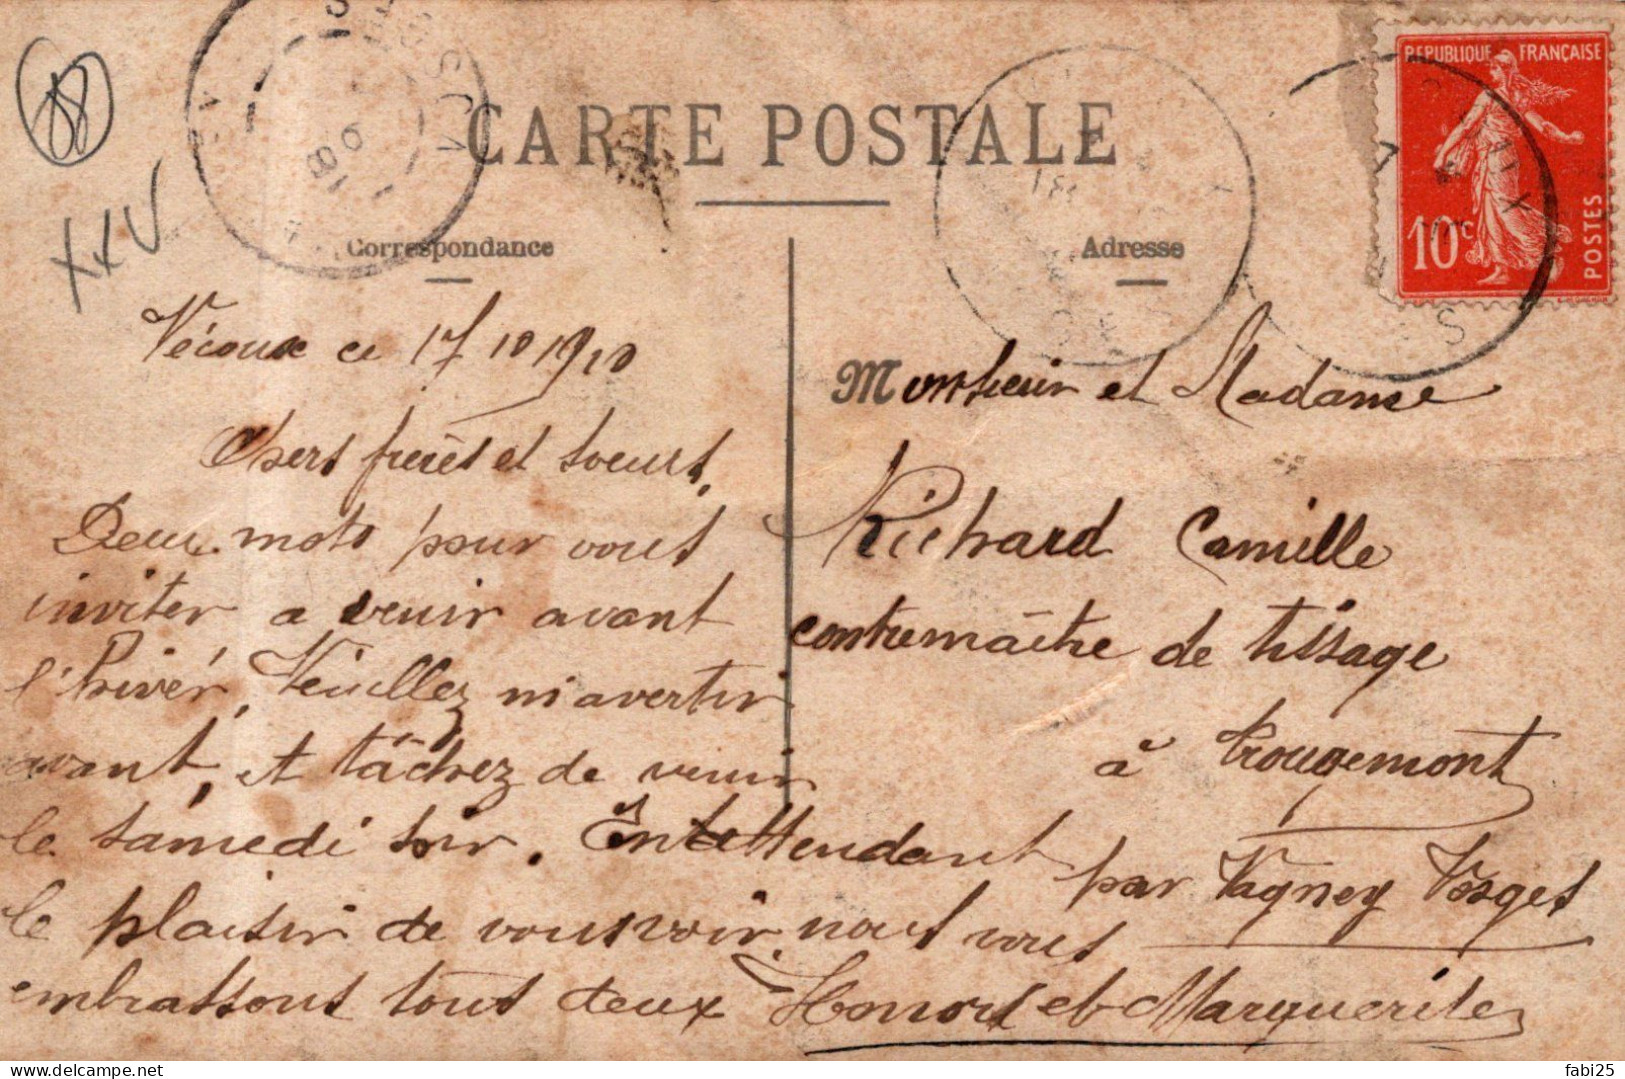 88
XXV
CARTE POSTALE
Correspondance
Adresse
REPUBLIQUE FRANÇAISE
10c
POSTES
Vécoux ce 17 10 1910
Chers frères et soeurs,
Deux mots pour vous
inviter a venir avant
l'hivér, Veuillez m'avertir
avant, et tâchez de venir
le samedi soir. En attendant
le plaisir de vous voir, nous vous
embrassons tous deux Honoré et Marguerite
Monsieur et Madame
Richard Camille
contremaître de tissage
à Trougemont
par Vagney Vosges
fabi25